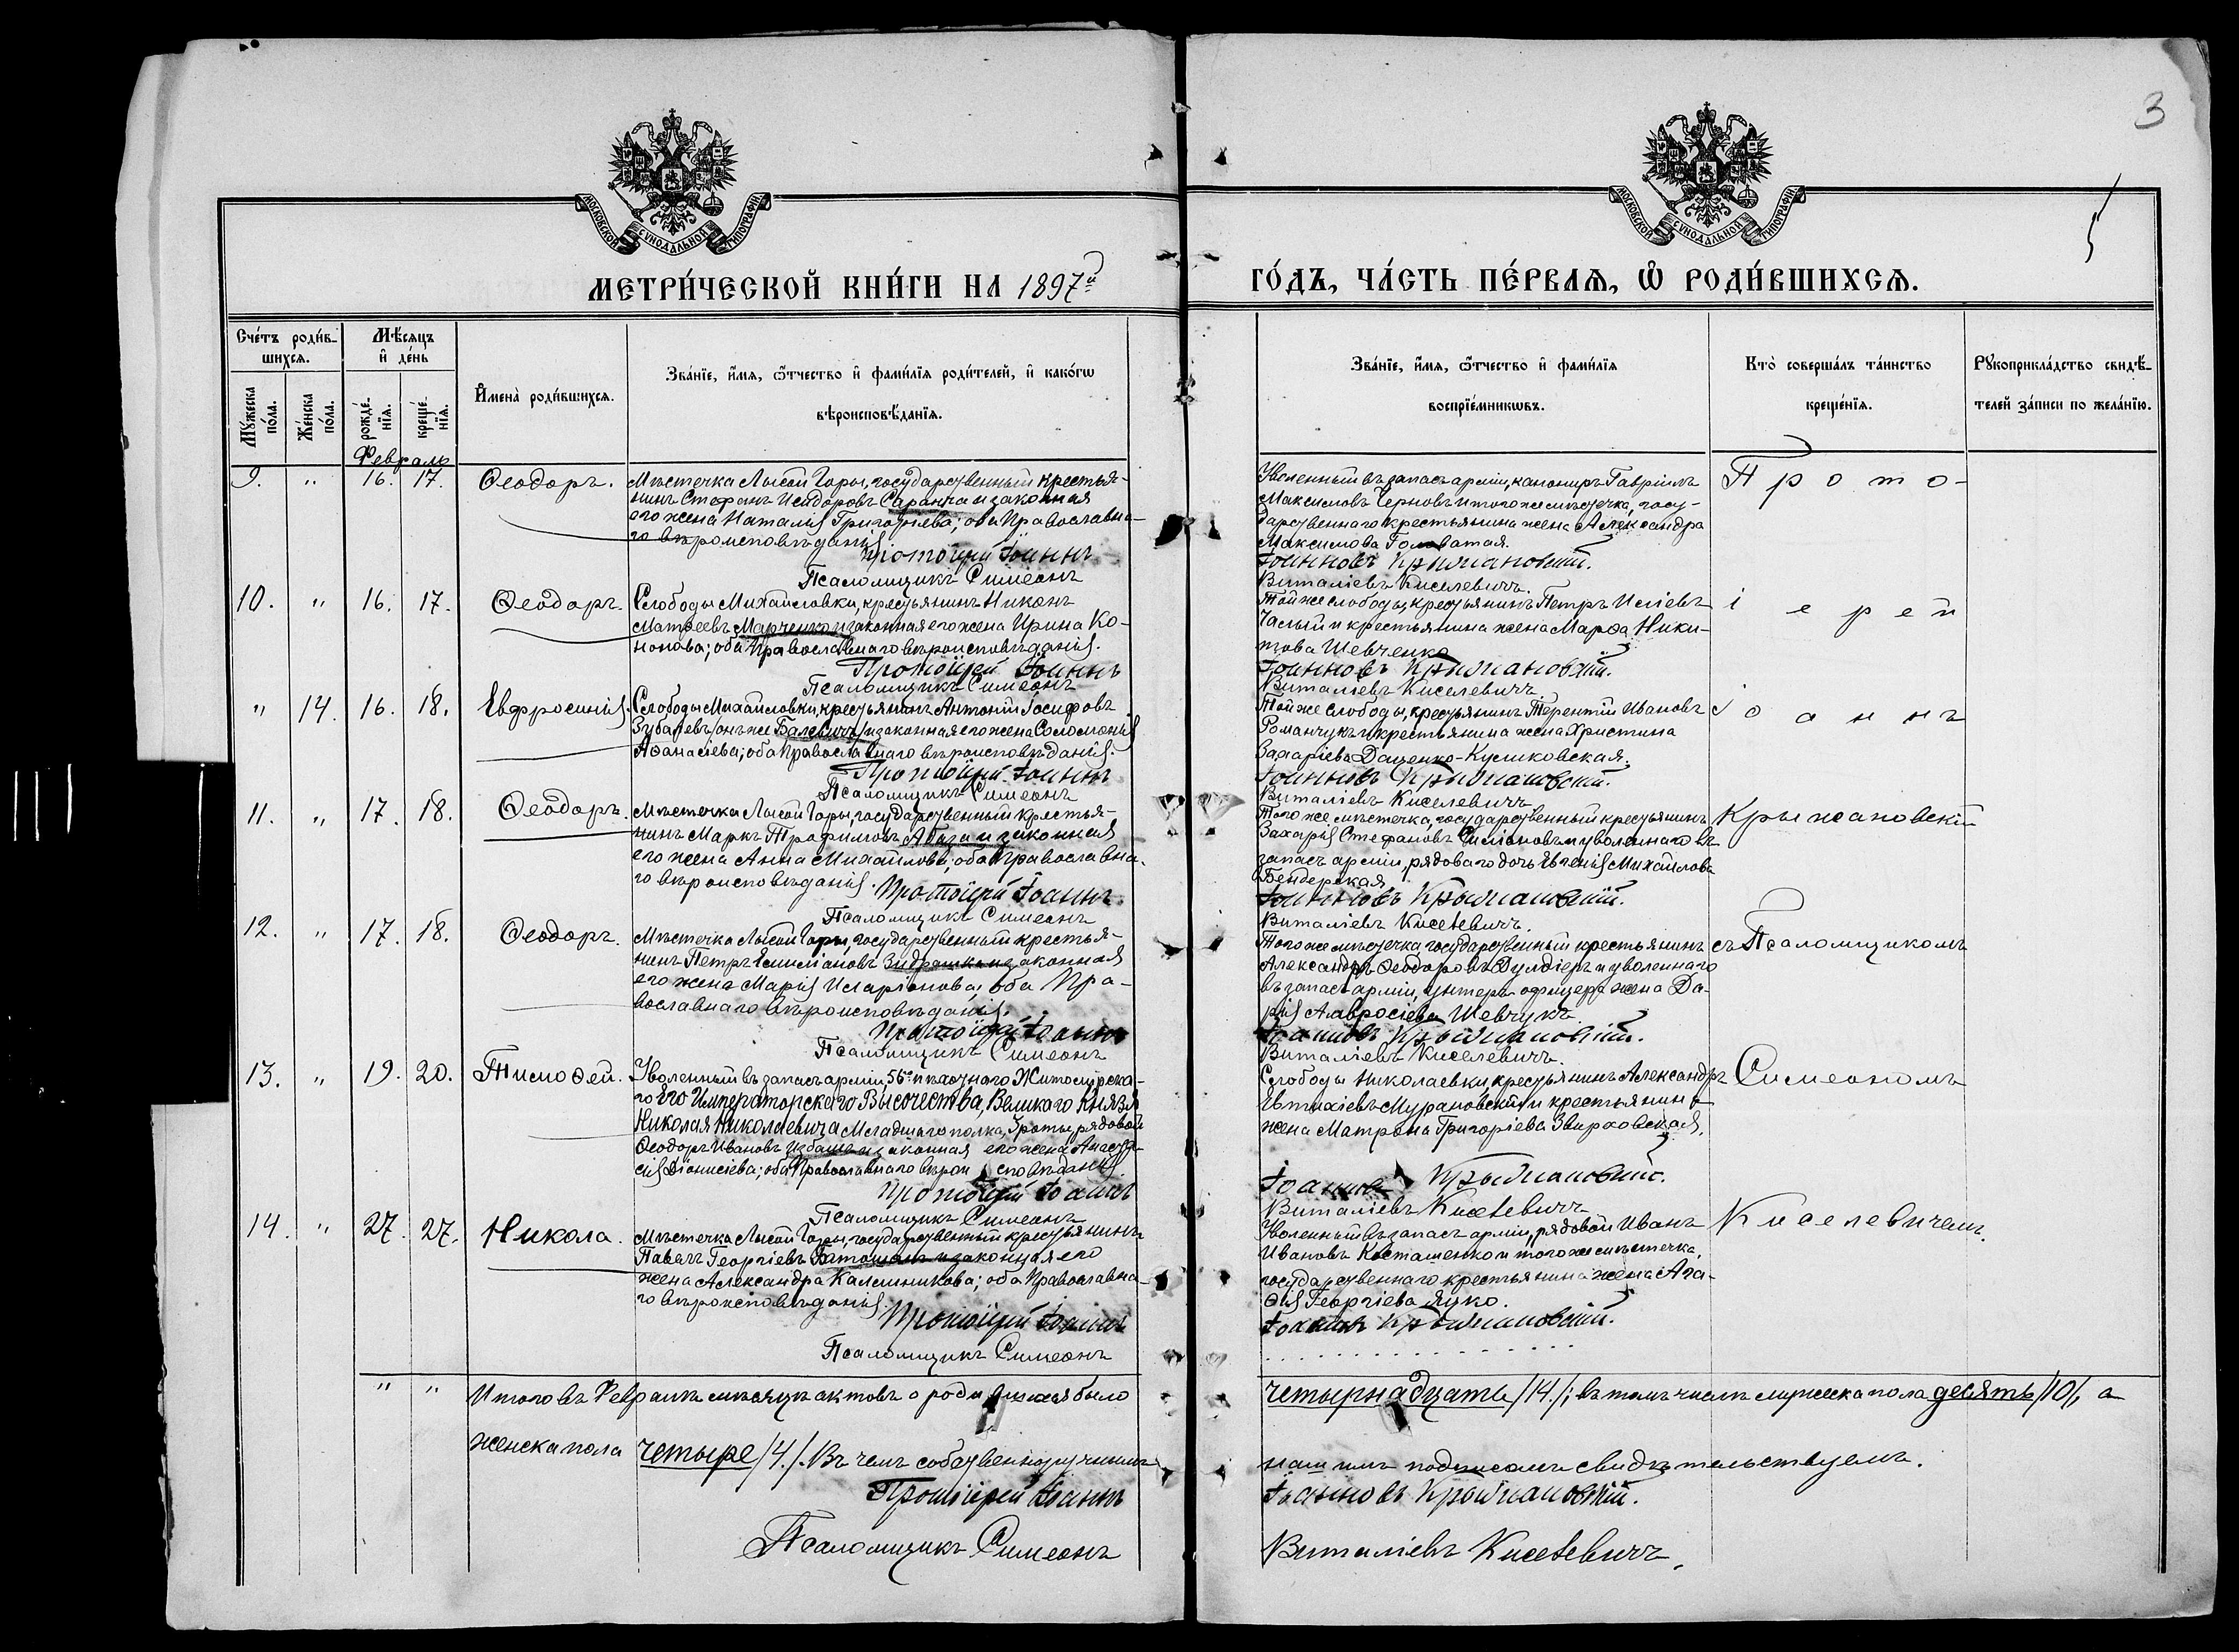 3
5
МОСКОВСКОЙ СѴНОДАЛЬНОЙ ТИПОГРАФІИ
МОСКОВСКОЙ СѴНОДАЛЬНОЙ ТИПОГРАФІИ
МЕТРИ́ЧЕСКОЙ КНИ́ГИ НА 1897й
ГО́ДЪ, ЧА́СТЬ ПЕ́РВАѦ, Ѡ҆ РОДИ́ВШИХСѦ.
Сче́тъ роди́в-
шихсѧ.
Мꙋ́жеска по́ла.
Же́нска по́ла.
Мѣ́сѧцъ и҆ де́нь
рожде́нїѧ.
креще́нїѧ.
И҆мена̀ роди́вшихсѧ.
Зва́нїе, и҆́мѧ, ѻ҆́тчество и҆ фами́лїѧ роди́телей, и҆ како́гѡ
вѣроисповѣ́данїѧ.
Зва́нїе, и҆́мѧ, ѻ҆́тчество и҆ фами́лїѧ
воспрїе́мникѡвъ.
Кто̀ соверша́лъ та́инство
креще́нїѧ.
Рꙋкоприкла́дство свидѣ́-
телей за́писи по жела́нїю.
Февраль
9. " 16. 17. Ѳеодоръ.
Мѣстечка Лысой Горы, государственный крестья-
нинъ Стефанъ Исидоровъ Саранча и законная
его жена Наталія Григорьева; оба Православна-
го вѣроисповѣданія.
Протоіерей Іоаннъ
Псаломщикъ Симеонъ
Уволенный въ запасъ арміи, канониръ Гавріилъ
Максимовъ Черновъ и того же мѣстечка, госу-
дарственнаго крестьянина жена Александра
Максимова Головатая.
Іоанновъ Крыжановскій.
Виталіевъ Киселевичъ.
Прото-
10. " 16. 17. Ѳеодоръ.
Слободы Михайловки, крестьянинъ Никонъ
Матѳеевъ Марченко и законная его жена Ирина Ко-
нонова; оба Православнаго вѣроисповѣданія.
Протоіерей Іоаннъ
Псаломщикъ Симеонъ
Той же слободы, крестьянинъ Петръ Иліевъ
Чалый и крестьянина жена Марѳа Ники-
това Шевченко
Іоанновъ Крыжановскій.
Виталіевъ Киселевичъ.
іерей
" 14. 16. 18. Евфросинія.
Слободы Михайловки, крестьянинъ Антоній Іосифовъ
Зубалевъ /онъ же Балевичъ/ и законная его жена Соломонія
Аѳанасіева; оба Православнаго вѣроисповѣданія.
Протоіерей Іоаннъ
Псаломщикъ Симеонъ
Той же слободы, крестьянинъ Терентій Ивановъ
Романчукъ и крестьянина жена Христина
Захаріева Даценко-Куликовская.
Іоанновъ Крыжановскій.
Виталіевъ Киселевичъ
Іоаннъ
11. " 17. 18. Ѳеодоръ.
Мѣстечка Лысой Горы, государственный крестья-
нинъ Маркъ Трофимовъ Абаза и законная
его жена Анна Михайлова; оба Православна-
го вѣроисповѣданія.
Протоіерей Іоаннъ
Псаломщикъ Симеонъ
Того же мѣстечка, государственный крестьянинъ
Захарія Стефановъ и уволеннаго въ
запасъ арміи, рядоваго дочь Евгенія Михайлова
Бендерская
Іоанновъ Крыжановскій.
Виталіевъ Киселевичъ.
Крыжановскій
12. " 17. 18. Ѳеодоръ.
Мѣстечка Лысой Горы, государственный крестья-
нинъ Петръ Емиліановъ и законная
его жена Марія Иларіонова; оба Пра-
вославнаго вѣроисповѣданія.
Протоіерей Іоаннъ
Псаломщикъ Симеонъ
Того же мѣстечка государственный крестьянинъ
Александръ Ѳеодоровъ и уволеннаго
въ запасъ арміи, унтеръ-офицера жена Да-
рія Амвросіева Шевчукъ
Іоанновъ Крыжановскій.
Виталіевъ Киселевичъ.
съ Псаломщикомъ
13. " 19. 20. Тимоѳей.
Уволенный въ запасъ арміи, 56го пѣхотнаго Житомірска-
го Его Императорскаго Высочества, Великаго Князя
Николая Николаевича Младшаго полка, роты рядовой
Ѳеодоръ Ивановъ и законная его жена Анаста-
сія Діонисіева; оба Православнаго вѣроисповѣданія.
Протоіерей Іоаннъ
Псаломщикъ Симеонъ
Слободы Николаевки, крестьянинъ Александръ
Евтихіевъ Мурановскій и крестьянина
жена Матрона Григоріева Звирховская.
Іоанновъ Крыжановскій.
Виталіевъ Киселевичъ
Симеономъ
14. " 27. 27. Никола.
Мѣстечка Лысой Горы, государственный крестьянинъ
Павелъ Георгіевъ и законная его
жена Александра Калинникова; оба Православна-
го вѣроисповѣданія.
Протоіерей Іоаннъ
Псаломщикъ Симеонъ
Уволенный въ запасъ арміи, рядовой Иванъ
Ивановъ Косташенко и того же мѣстечка,
государственнаго крестьянина жена Ага-
ѳія Георгіева Яцко.
Іоанновъ Крыжановскій.
Киселевичемъ.
" " Итого въ Февралѣ мѣсяцѣ актовъ о родившихся было
четырнадцать /14./; въ томъ числѣ мужеска пола десять /10/, а
женска пола четыре /4./. Въ чемъ собственноручнымъ
нашимъ подписомъ свидѣтельствуемъ.
Протоіерей Іоаннъ
Іоанновъ Крыжановскій.
Псаломщикъ Симеонъ
Виталіевъ Киселевичъ.